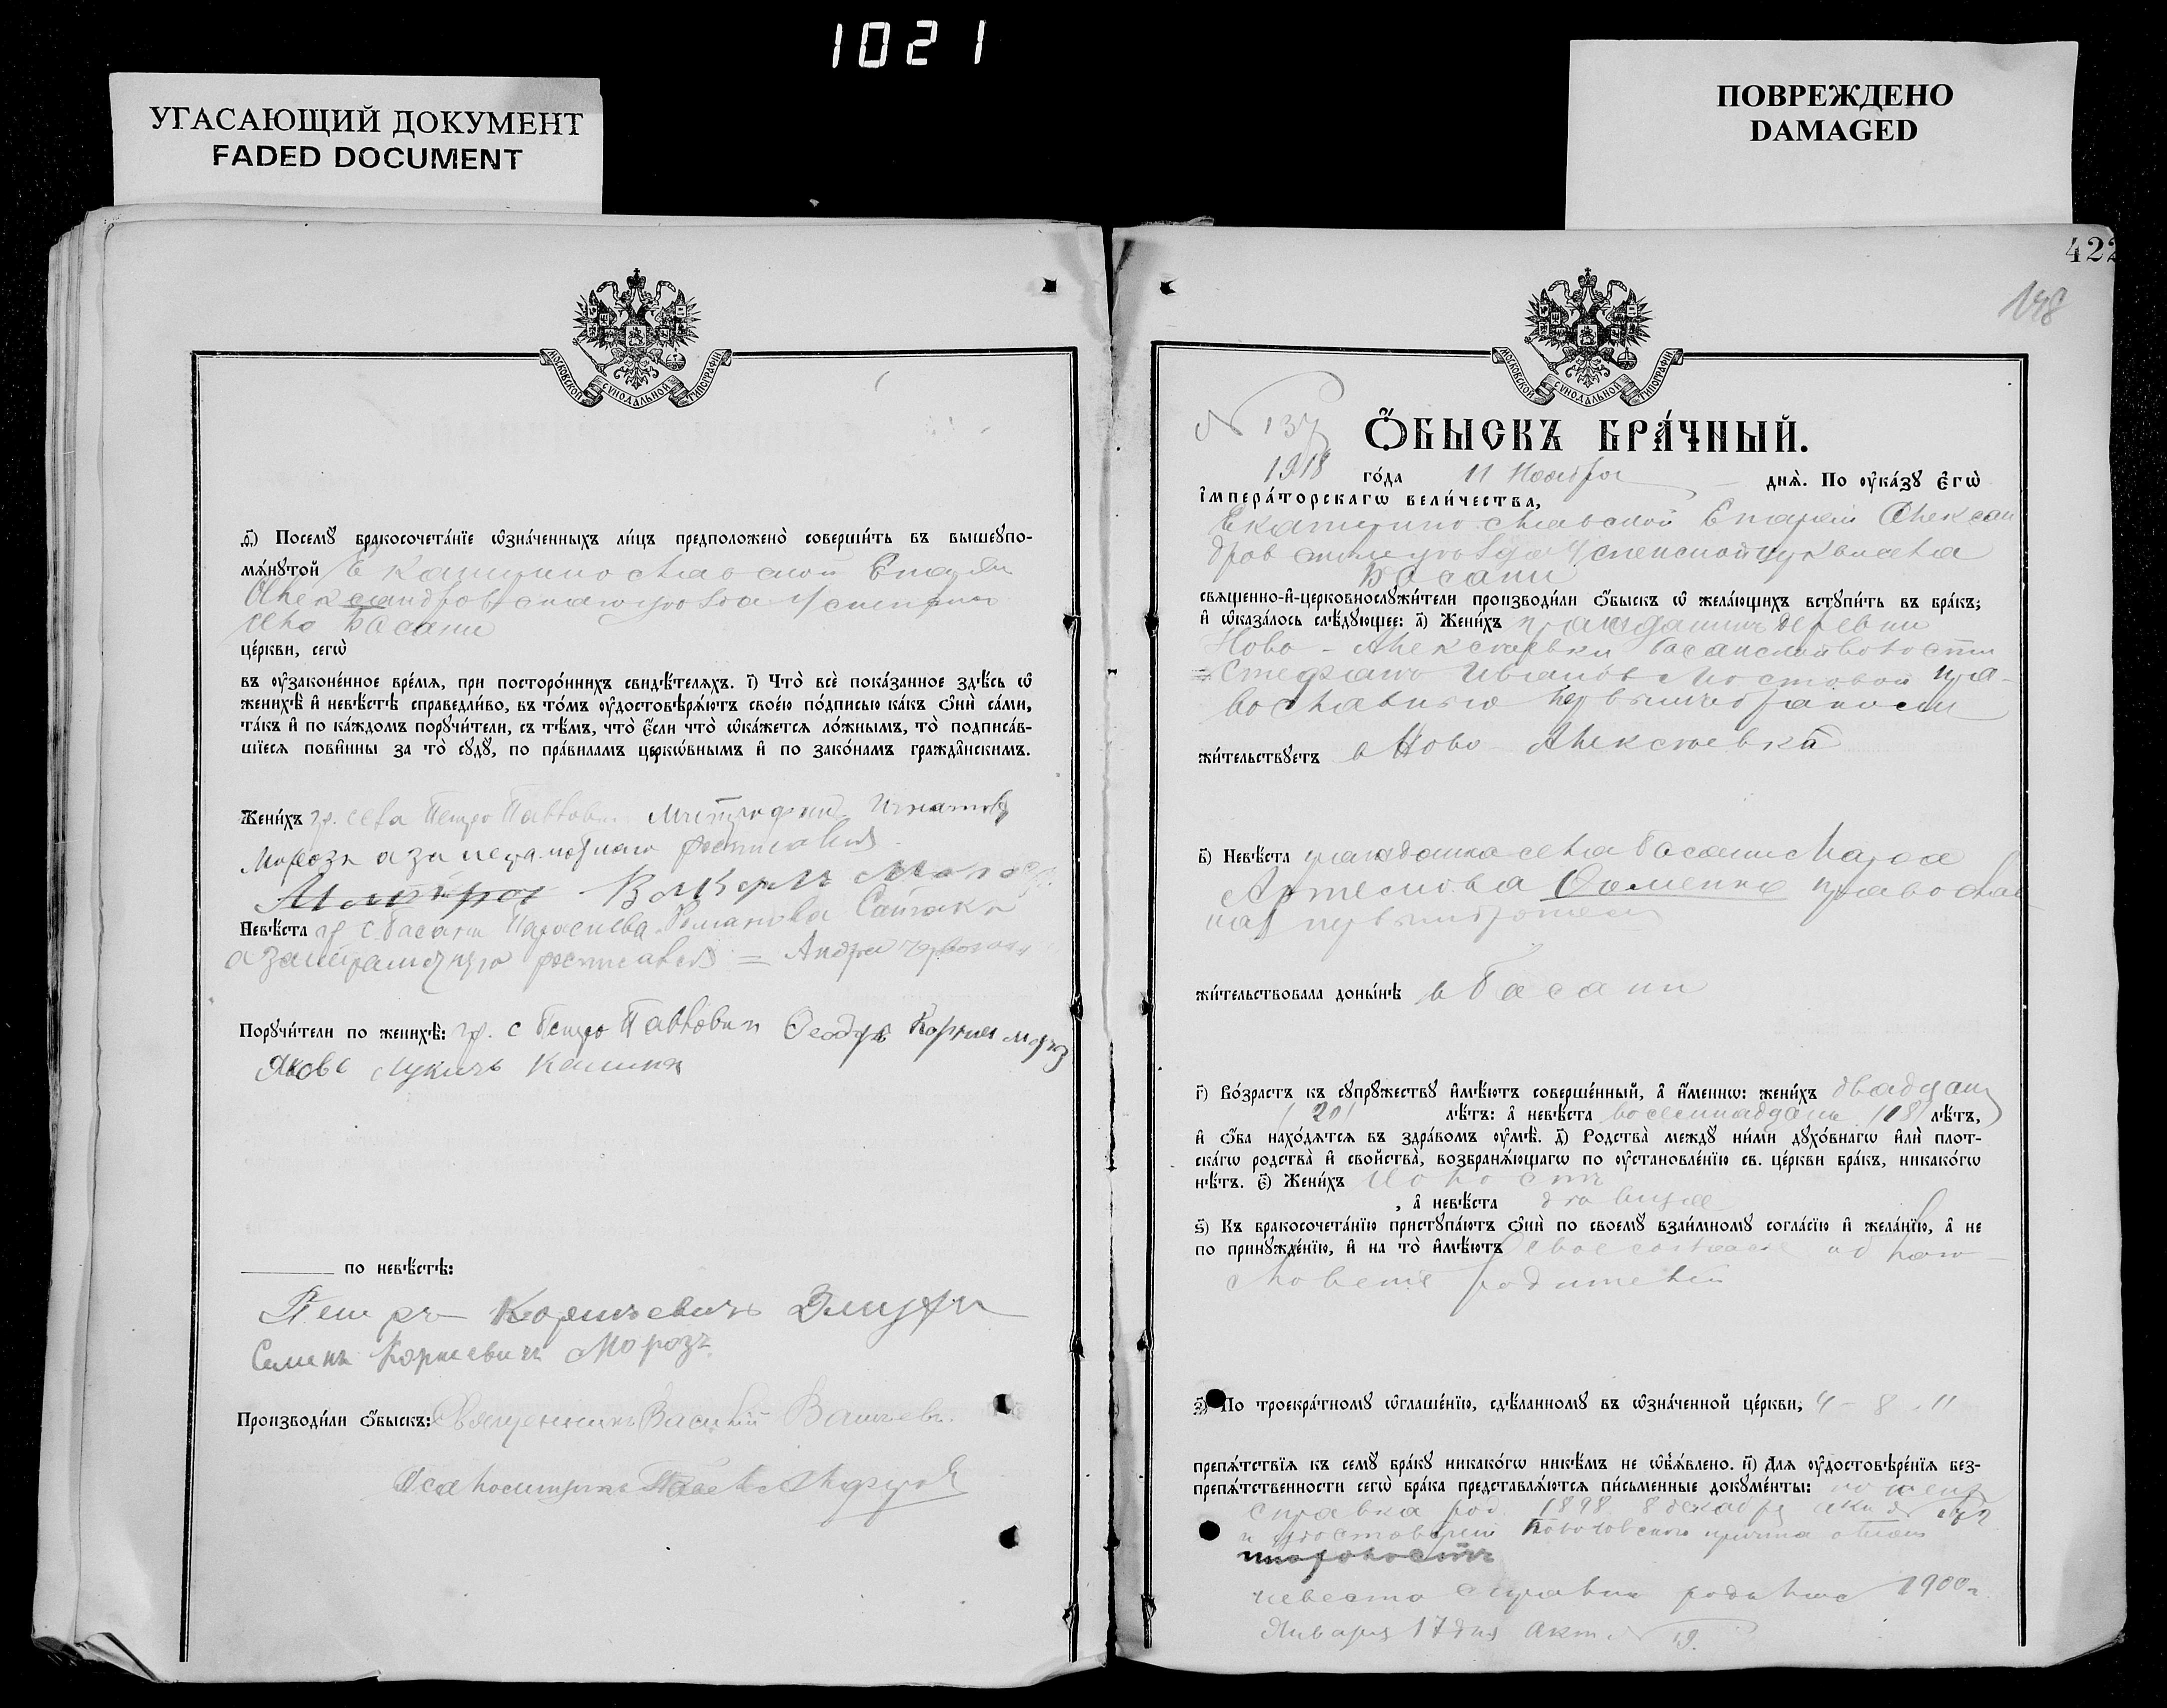 1021
УГАСАЮЩИЙ ДОКУМЕНТ
FADED DOCUMENT
ПОВРЕЖДЕНО
DAMAGED
МОСКОВСКОЙ СУНОДАЛЬНОЙ ТИПОГРАФІИ
ѳ҃) Посемꙋ̀ бракосочета́нїе ѡ҆зна́ченныхъ ли́цъ предположено̀ соверши́ть въ вышеꙋпо-
мѧ́нꙋтой Екатеринославской Епархіи
Александровскаго уезда Успенской
села Басани
це́ркви, сегѡ̀
въ ᲂу҆зако́ненное вре́мѧ, при посторо́ннихъ свидѣ́телѧхъ. і҃) Что̀ всѐ пока́занное здѣ́сь ѡ҆
женихѣ̀ и҆ невѣ́стѣ справедли́во, въ то́мъ ᲂу҆достовѣрѧ́ютъ свое́ю по́дписью ка́къ ѻ҆нѝ са́ми,
та́къ и҆ по ка́ждомъ порꙋчи́тели, съ тѣ́мъ, что̀ є҆́сли что̀ ѡ҆ка́жетсѧ ло́жнымъ, то̀ подписа́в-
шїесѧ пови́нны за то̀ сꙋдꙋ̀, по пра́виламъ церко́внымъ и҆ по зако́намъ гражда́нскимъ.
Жени́хъ гр. села Петро Павловки Митрофан Игнатов
Мороза а за неграмотнаго росписался
Мороз
Невѣ́ста гр с. Басани Параскева Романова Сайгака
а за неграмотную росписался = Андрей
Порꙋчи́тели по женихѣ̀: гр. с Петро Павловки Феодоръ Корнил Мороз
Яковъ Лукичъ
по невѣ́стѣ:
Петръ Корнѣевичъ
Семенъ Корнеевичъ Морозъ
Производи́ли ѻ҆́быскъ: Священникъ Василій
Псаломщикъ Павелъ
422
148
МОСКОВСКОЙ СУНОДАЛЬНОЙ ТИПОГРАФІИ
№ 137
Ѻ҆́БЫСКЪ БРА́ЧНЫЙ.
1918 го́да 11 Ноября днѧ̀. По ᲂу҆ка́зꙋ Є҆гѡ̀
І҆мпера́торскагѡ вели́чества,
Екатеринославской Епархіи Алексан
дровскаго уезда Успенской церкви села
Басани
свѧще́нно-и҆-церковнослꙋжи́тели производи́ли ѻ҆́быскъ ѡ҆ жела́ющихъ встꙋпи́ть въ бра́къ;
и҆ ѡ҆каза́лось слѣ́дꙋющее: а҃) Жени́хъ гражданинъ деревни
Ново-Алексеевки Басанской волости
Стефанъ Ивановъ Мостовой пра-
вославнаго первымъ бракомъ
жи́тельствꙋетъ в Ново Алексеевка
в҃) Невѣ́ста гражданка села Басани
Артемова православ
ная первымъ бракомъ
жи́тельствовала доны́нѣ в Басани
г҃) Во́зрастъ къ сꙋпрꙋ́жествꙋ и҆мѣ́ютъ соверше́нный, а҆ и҆́меннѡ: жени́хъ двадцать
(20) лѣ́тъ: а҆ невѣ́ста восемнадцать (18) лѣ́тъ,
и҆ ѻ҆́ба нахо́дѧтсѧ въ здра́вомъ ᲂу҆мѣ̀. д҃) Родства̀ междꙋ̀ ни́ми дꙋхо́внагѡ и҆лѝ плот-
ска́гѡ родства̀ и҆ сво́йства̀, возбранѧ́ющагѡ по ᲂу҆становле́нїю св. це́ркви бра́къ, никако́гѡ
нѣ́тъ. є҃) Жени́хъ холостъ
, а҆ невѣ́ста девица
ѕ҃) Къ бракосочета́нїю пристꙋпа́ютъ ѻ҆нѝ по своемꙋ̀ взаи́мномꙋ согла́сїю и҆ жела́нїю, а҆ не
по принꙋжде́нїю, и҆ на то̀ и҆мѣ́ютъ свое согласіе и благо
словеніе родителей
з҃) По троекра́тномꙋ ѡ҆глаше́нїю, сдѣ́ланномꙋ въ ѡ҆зна́ченной це́ркви, 4 - 8 - 11
препѧ́тствїѧ къ семꙋ̀ бра́кꙋ никако́гѡ никѣ́мъ не ѡ҆б̾ѧ́влено. и҃) Длѧ ᲂу҆достовѣре́нїѧ без-
препѧ́тственности сегѡ̀ бра́ка представлѧ́ютсѧ пи́сьменные докꙋме́нты:
справка род. 1898 8 декабря акт №
и удостовереніе причта
невеста справка родилась 1900 г.
Января 17 дня Акт. № 19.